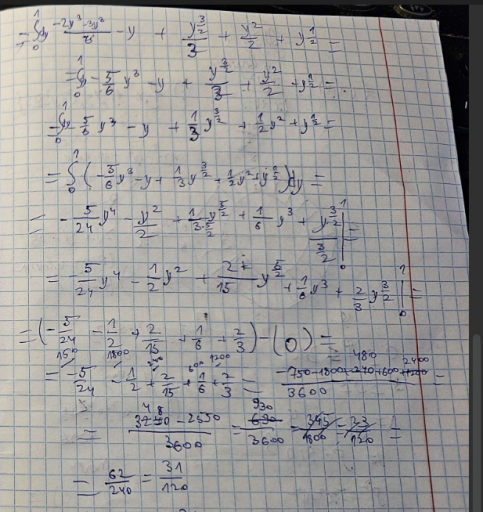 = ∫₀¹ dy (-2y³-3y³)/6 - y + y^(3/2)/3 + y²/2 + y^(1/2) =
= ∫₀¹ - 5/6 y³ - y + y^(3/2)/3 + y²/2 + y^(1/2) =
= ∫₀¹ - 5/6 y³ - y + 1/3 y^(3/2) + 1/2 y² + y^(1/2) =
= ∫₀¹ (- 5/6 y³ - y + 1/3 y^(3/2) + 1/2 y² + y^(1/2)) dy =
= - 5/24 y⁴ - y²/2 + 1/(3·5/2) y^(5/2) + 1/6 y³ + y^(3/2)/(3/2) |₀¹ =
= - 5/24 y⁴ - 1/2 y² + 2/15 y^(5/2) + 1/6 y³ + 2/3 y^(3/2) |₀¹ =
= (- 5/24 - 1/2 + 2/15 + 1/6 + 2/3) - (0) =
= - 5/24 - 1/2 + 2/15 + 1/6 + 2/3 = (-750-1800+480+600+2400)/3600
= (3480 - 2550)/3600 = 930/3600 = 345/1800 = 23/120 =
= 62/240 = 31/120